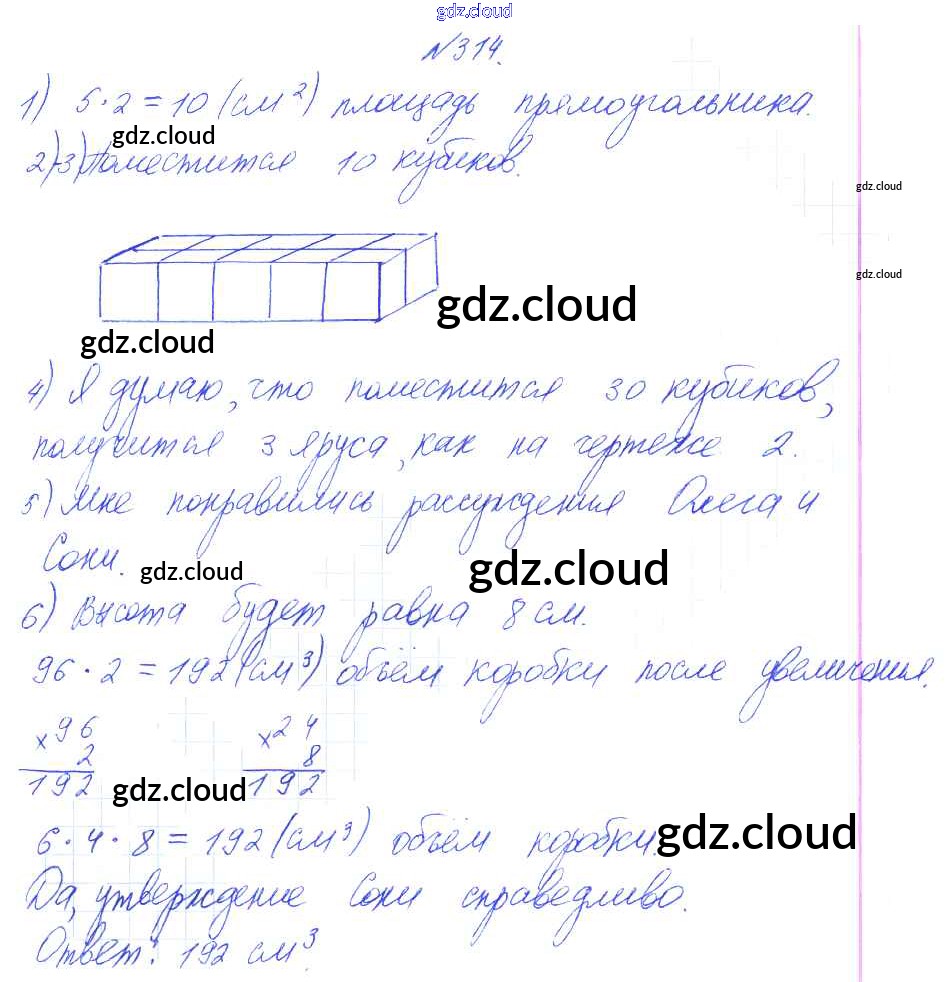 gdz.cloud
№314.
1) 5·2=10 (см²) площадь прямоугольника.
gdz.cloud
2)-3) Поместится 10 кубиков.
gdz.cloud
gdz.cloud
gdz.cloud
gdz.cloud
4) Я думаю, что поместится 30 кубиков,
получится 3 яруса, как на чертеже 2.
5) Мне понравились рассуждения Олега и
Сони.
gdz.cloud
gdz.cloud
6) Высота будет равна 8 см.
96·2=192 (см³) объём коробки после увеличения.
×96 ×24
2 8
192 192
gdz.cloud
6·4·8=192 (см³) объём коробки.
gdz.cloud
Да, утверждение Сони справедливо.
Ответ: 192 см³.